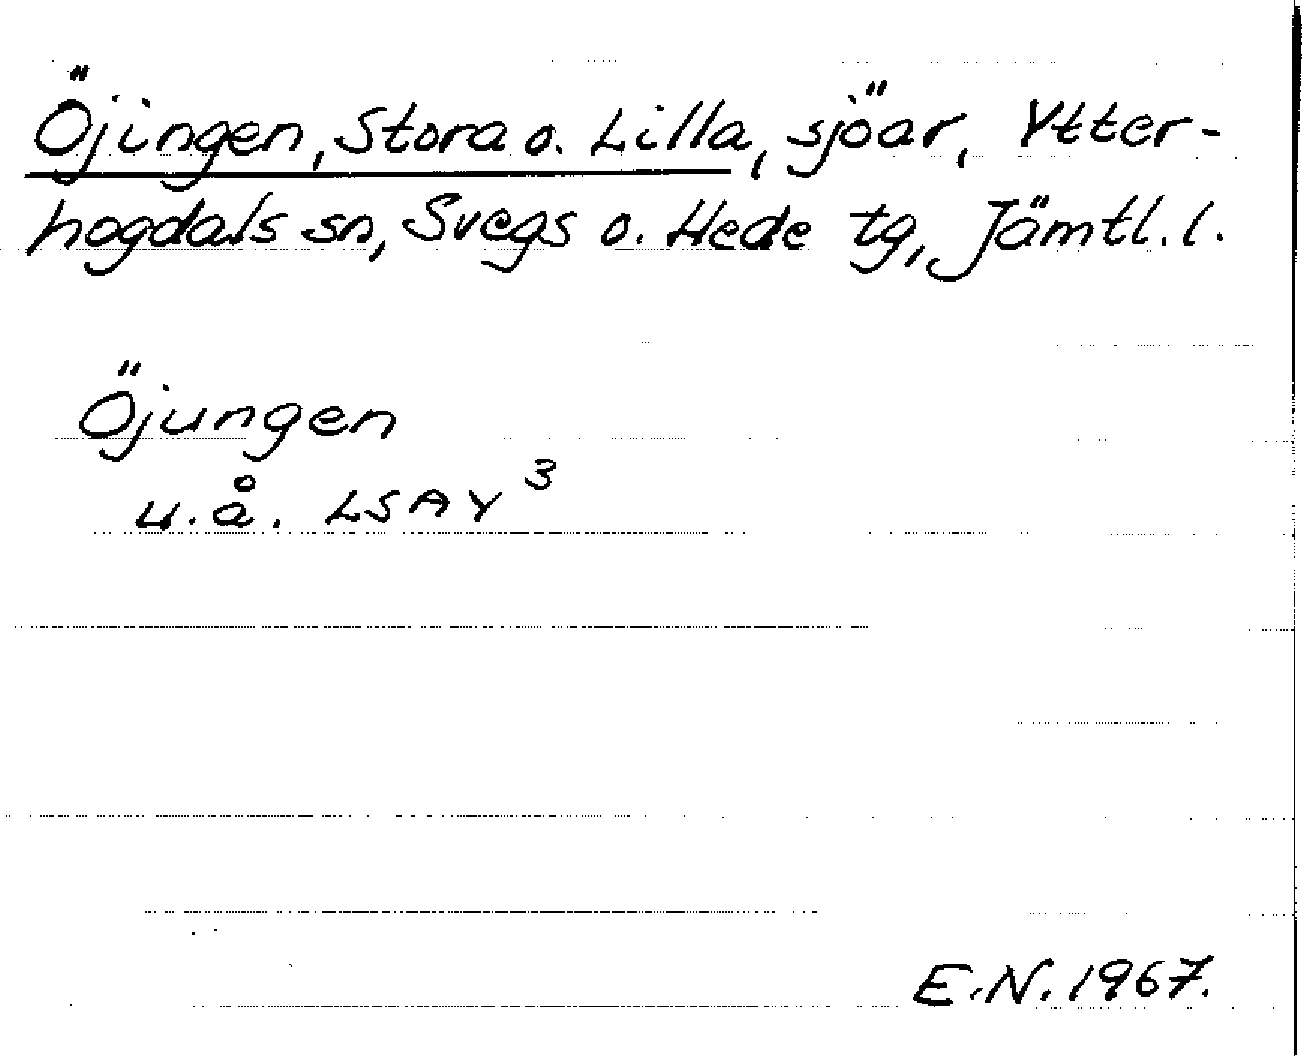 Öjingen, Stora o. Lilla, sjöar, Ytter-
hogdals sn, Svegs o. Hede tg, Jämtl. l.
Öjungen
u. å. LSAY 3
E.N. 1967.